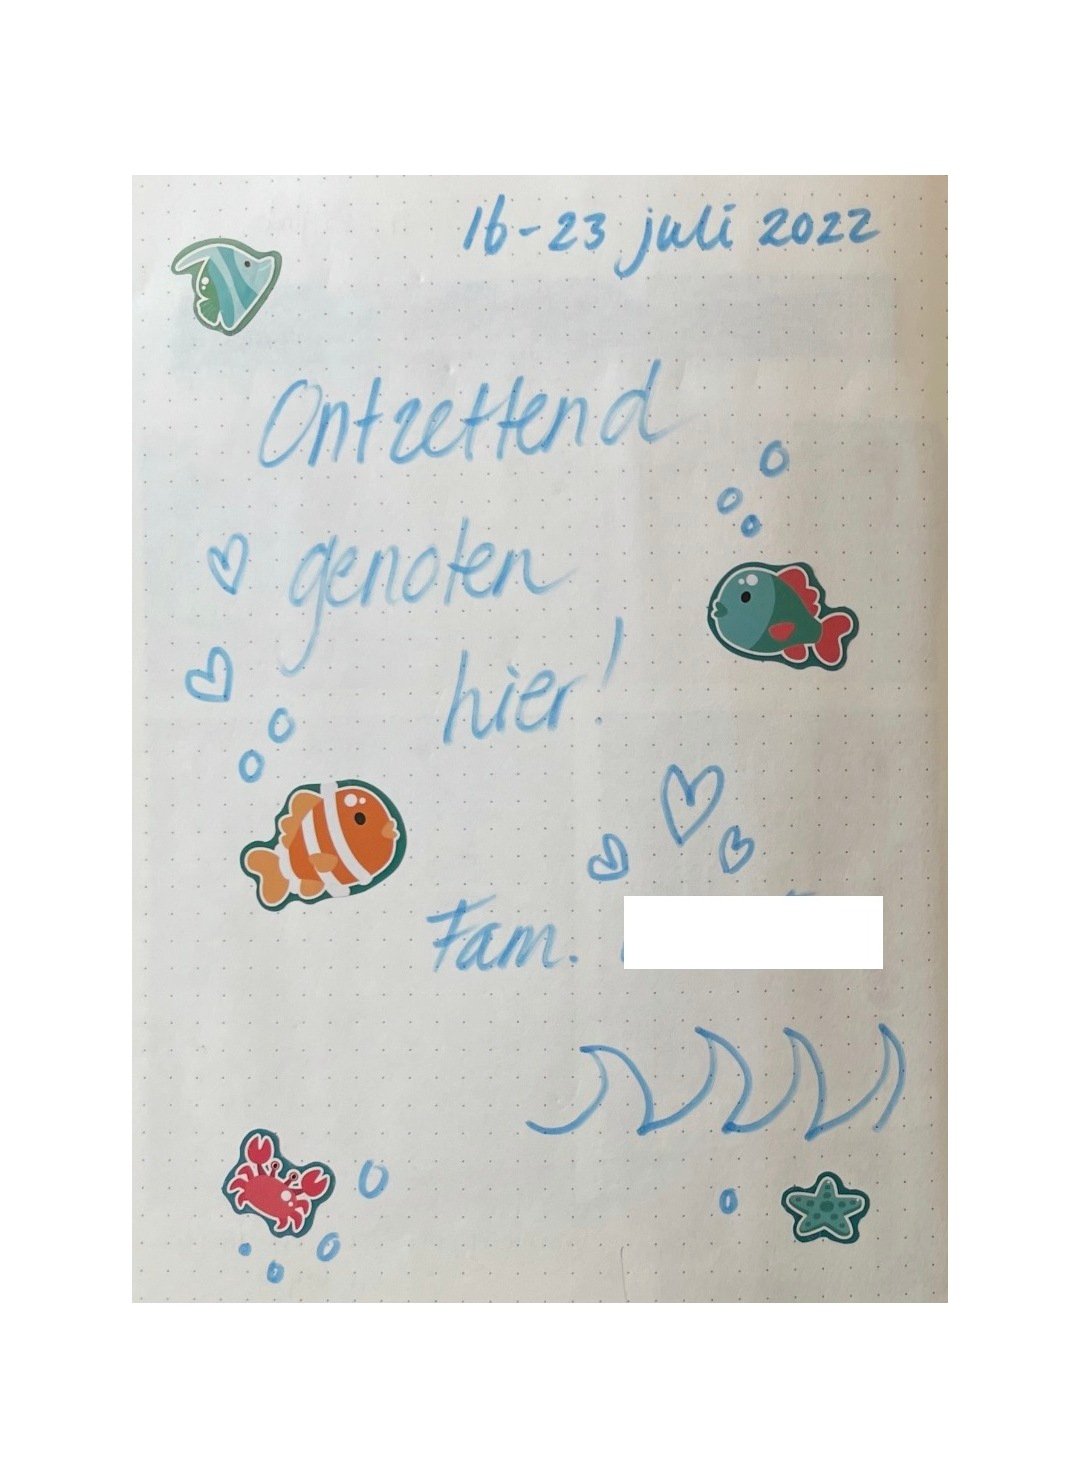 16-23 juli 2022
Ontzettend
genoten
hier!
Fam.